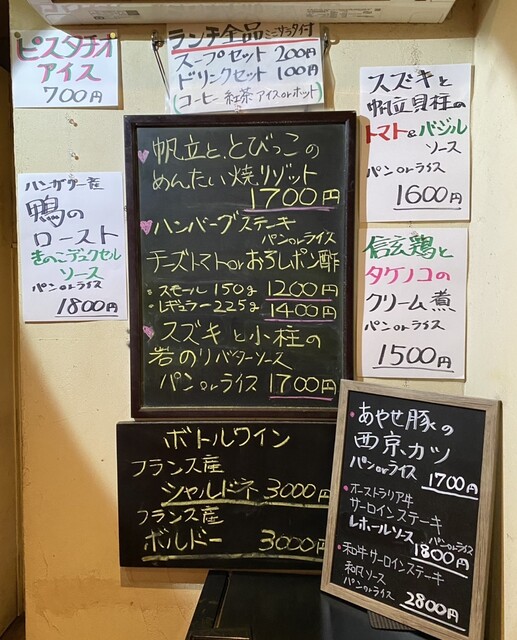 ピスタチオ
アイス
700円
ランチ全品 ミニサラダ付
スープセット 200円
ドリンクセット 100円
(コーヒー 紅茶 アイスorホット)
スズキと
帆立貝柱の
トマト&バジル
ソース
パンorライス
1600円
ハンガリー産
鴨の
ロースト
きのこデュクセル
ソース
パンorライス
1800円
帆立と、とびっこの
めんたい焼リゾット
1700円
ハンバーグステーキ
パンorライス
チーズトマトorおろしポン酢
スモール 150g 1200円
レギュラー 225g 1400円
スズキと小柱の
岩のりバターソース
パンorライス 1700円
信玄鶏と
タケノコの
クリーム煮
パンorライス
1500円
ボトルワイン
フランス産
シャルドネ 3000円
フランス産
ボルドー 3000円
あやせ豚の
西京カツ
パンorライス 1700円
オーストラリア牛
サーロインステーキ
レホールソース パンorライス
1800円
和牛サーロインステーキ
和風ソース
パンorライス
2800円